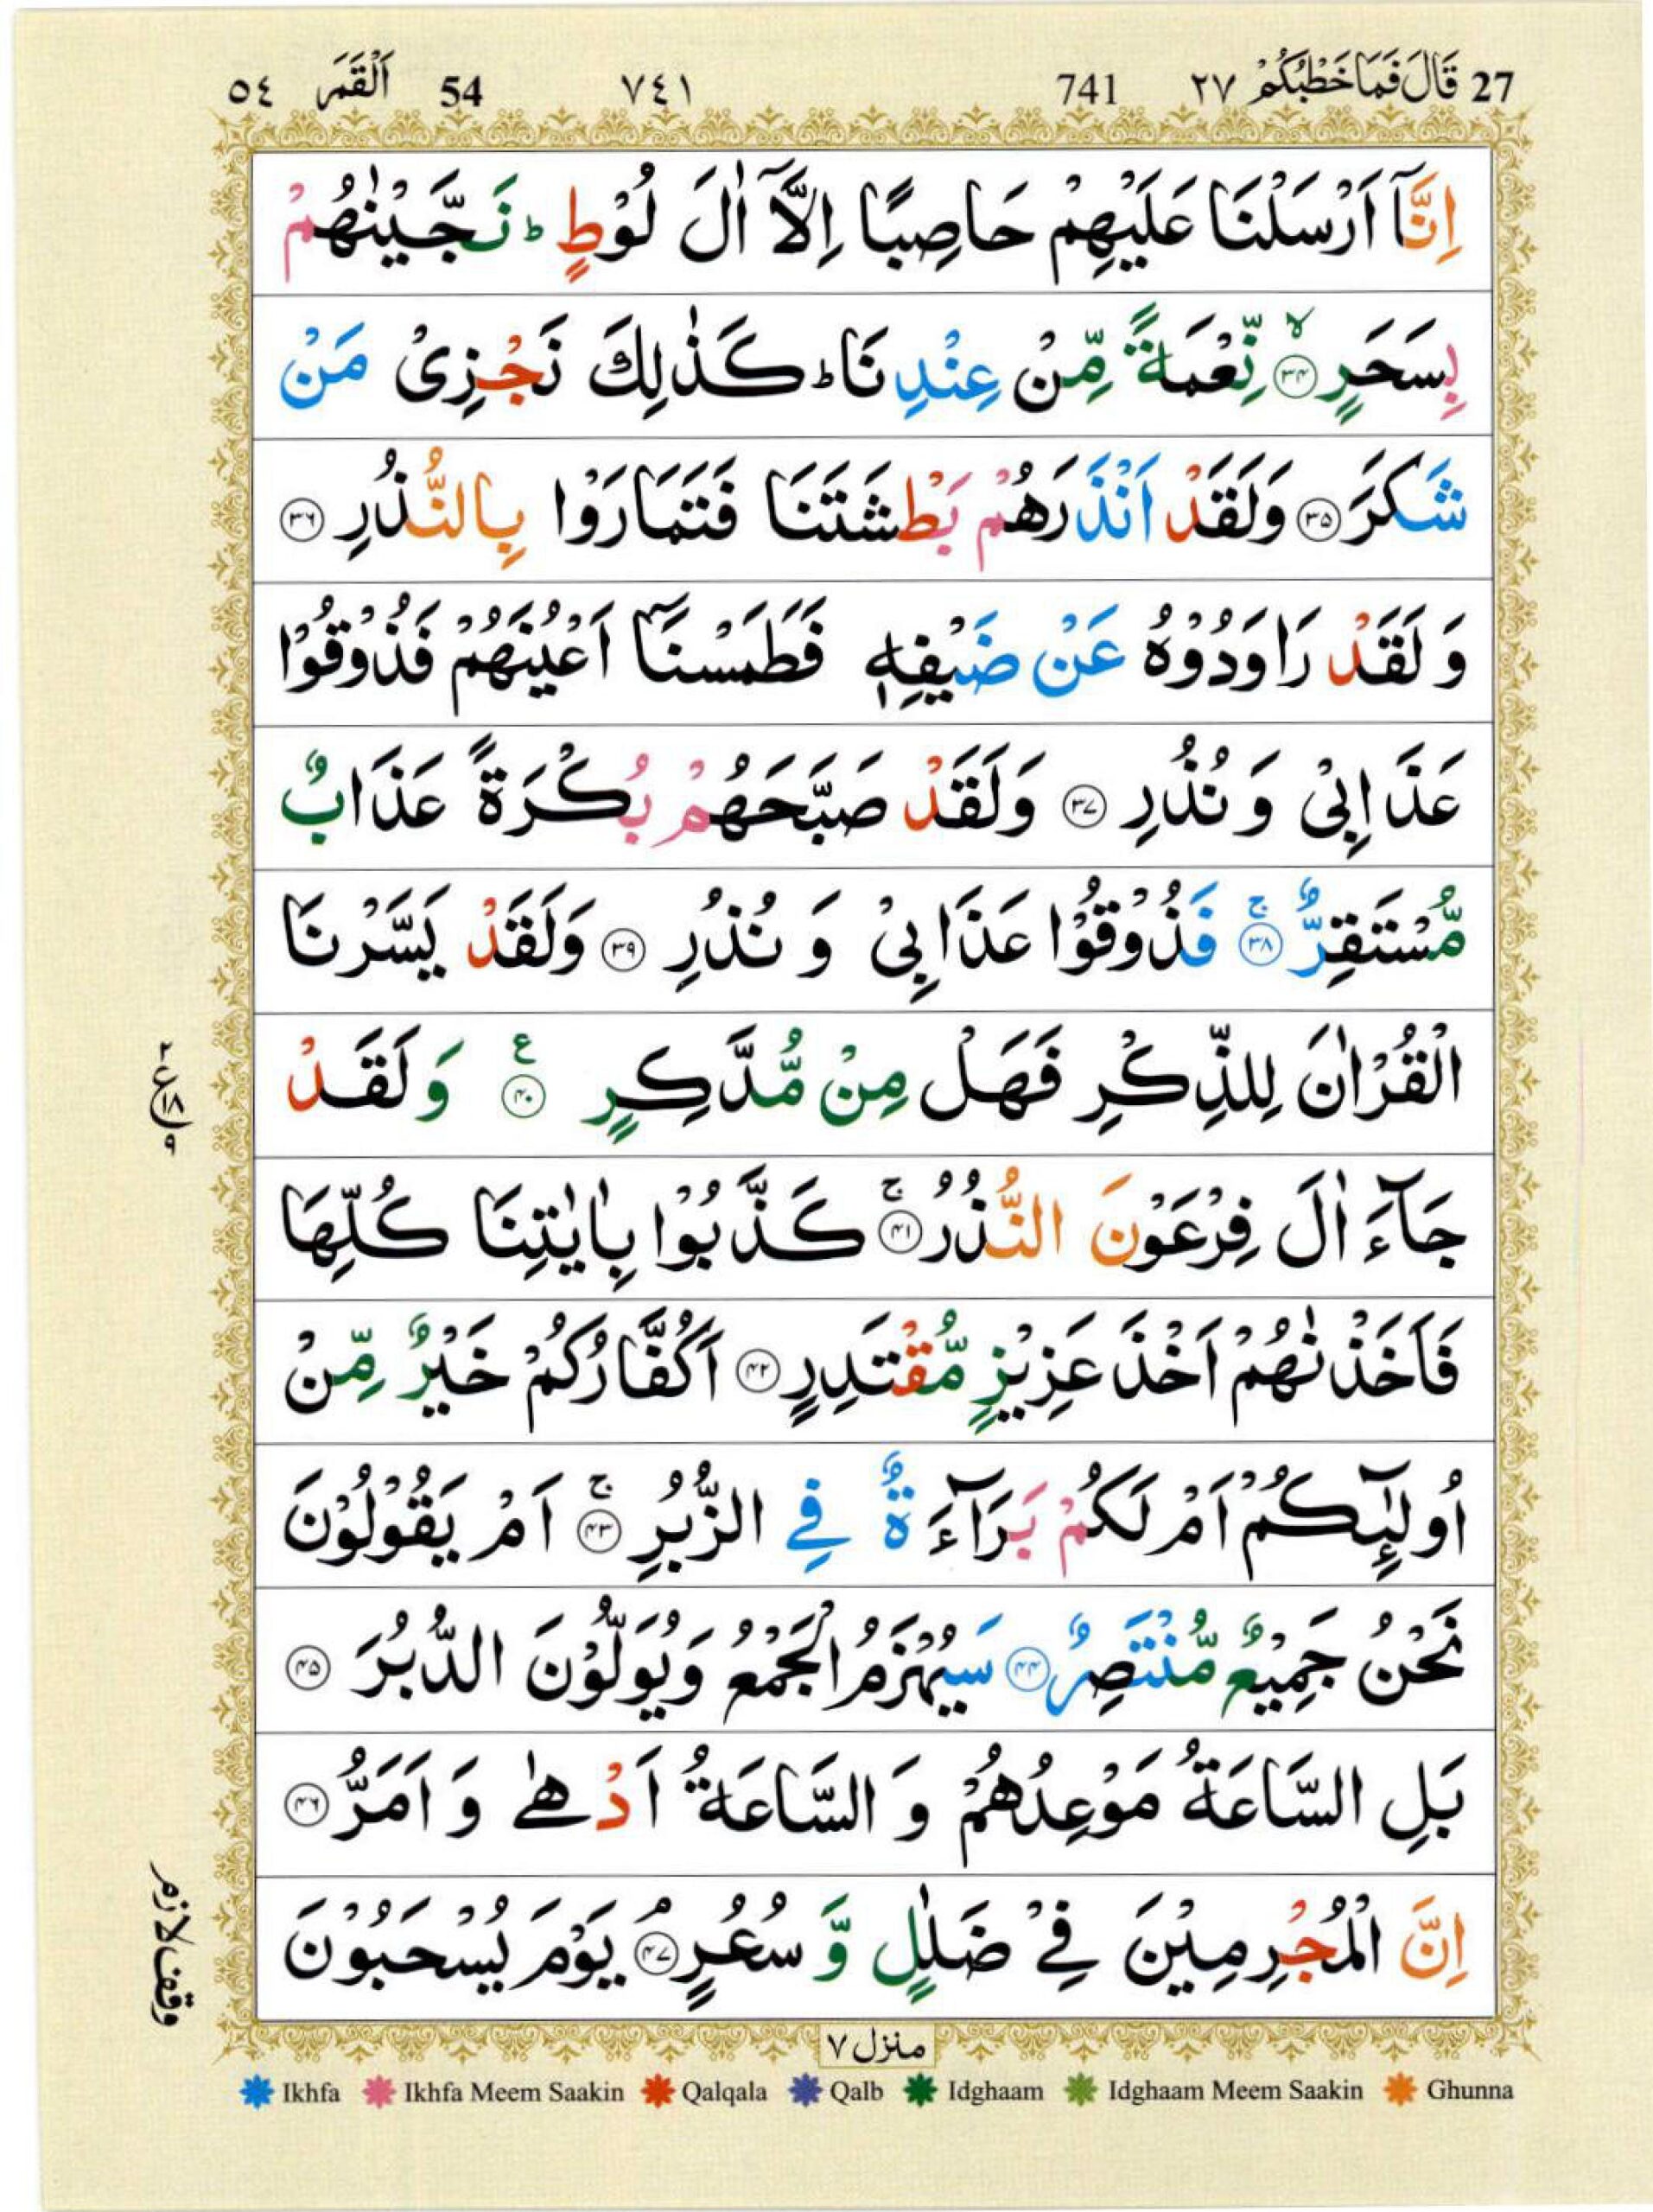 27 قَالَ فَمَا خَطْبُكُمْ ٢٧ 741 ٧٤١ 54 اَلْقَمَر ٥٤
اِنَّآ اَرْسَلْنَا عَلَيْهِمْ حَاصِبًا اِلَّآ اٰلَ لُوْطٍ ؕ نَجَّيْنٰهُمْ
بِسَحَرٍ ۙ‏﴿۳۴﴾ نِّعْمَةً مِّنْ عِنْدِنَا ؕ كَذٰلِكَ نَجْزِىْ مَنْ
شَكَرَ ﴿۳۵﴾ وَلَقَدْ اَنْذَرَهُمْ بَطْشَتَنَا فَتَمَارَوْا بِالنُّذُرِ ﴿۳۶﴾
وَ لَقَدْ رَاوَدُوْهُ عَنْ ضَيْفِهٖ فَطَمَسْنَآ اَعْيُنَهُمْ فَذُوْقُوْا
عَذَابِىْ وَ نُذُرِ ﴿۳۷﴾ وَلَقَدْ صَبَّحَهُمْ بُكْرَةً عَذَابٌ
مُّسْتَقِرٌّ ۚ ﴿۳۸﴾ فَذُوْقُوْا عَذَابِىْ وَ نُذُرِ ﴿۳۹﴾ وَلَقَدْ يَسَّرْنَا
الْقُرْاٰنَ لِلذِّكْرِ فَهَلْ مِنْ مُّدَّكِرٍ ﴿۴۰﴾ ع وَلَقَدْ
٢ ع ١٨ ٩
جَآءَ اٰلَ فِرْعَوْنَ النُّذُرُ ۚ ﴿۴۱﴾ كَذَّبُوْا بِاٰيٰتِنَا كُلِّهَا
فَاَخَذْنٰهُمْ اَخْذَ عَزِيْزٍ مُّقْتَدِرٍ ﴿۴۲﴾ اَكُفَّارُكُمْ خَيْرٌ مِّنْ
اُولٰٓئِكُمْ اَمْ لَكُمْ بَرَآءَةٌ فِى الزُّبُرِ ۚ ﴿۴۳﴾ اَمْ يَقُوْلُوْنَ
نَحْنُ جَمِيْعٌ مُّنْتَصِرٌ ﴿۴۴﴾ سَيُهْزَمُ الْجَمْعُ وَيُوَلُّوْنَ الدُّبُرَ ﴿۴۵﴾
بَلِ السَّاعَةُ مَوْعِدُهُمْ وَ السَّاعَةُ اَدْهٰى وَ اَمَرُّ ﴿۴۶﴾
اِنَّ الْمُجْرِمِيْنَ فِىْ ضَلٰلٍ وَّ سُعُرٍ ۘ ﴿۴۷﴾ يَوْمَ يُسْحَبُوْنَ
وقف لازم
منزل ٧
Ikhfa Ikhfa Meem Saakin Qalqala Qalb Idghaam Idghaam Meem Saakin Ghunna